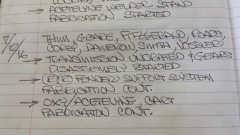 ACETYLENE WELDER STAND
FABRICATION STARTED
7/6/16 THIM, GEARE, FITZGERALD, ROADS
CODY, DAMERON, SMITH, VOSLER
→ TRANSMISSION UNLOADED & GEARS
DISASSEMBLY STARTED
→ FENDER SUPPORT SYSTEM
FABRICATION CONT.
→ OXY/ACETYLENE CART
FABRICATION CONT.